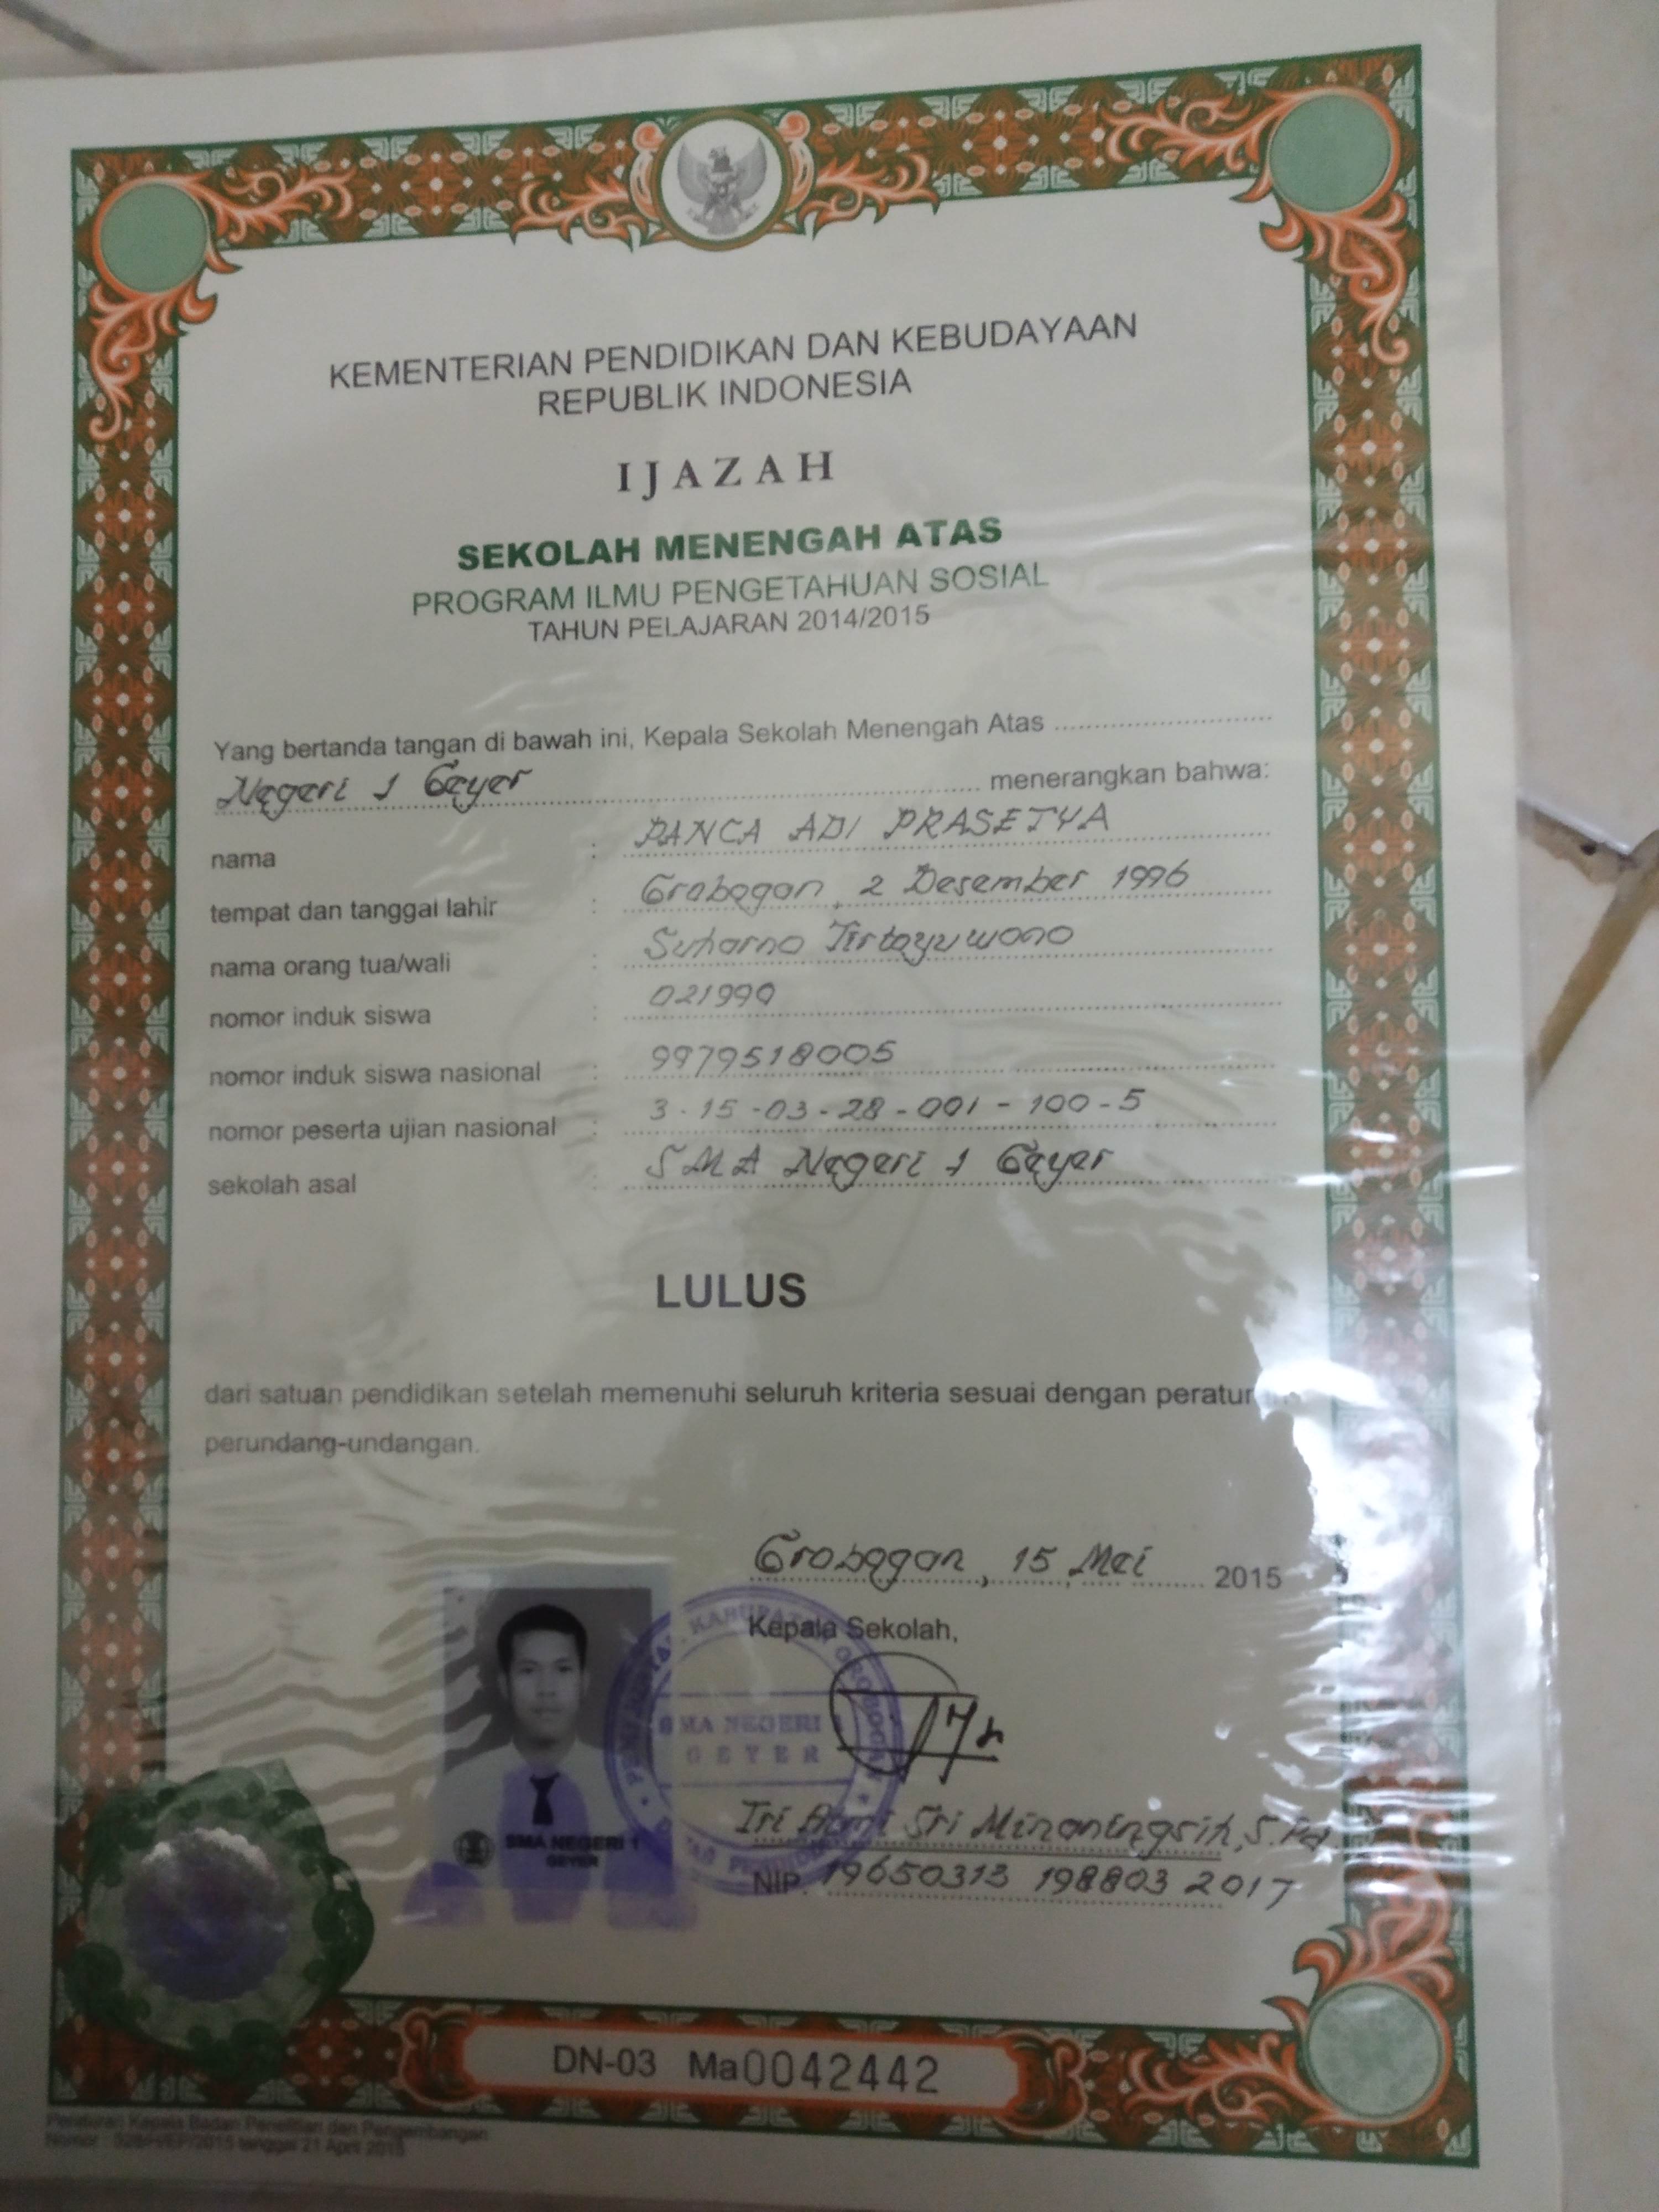 KEMENTERIAN PENDIDIKAN DAN KEBUDAYAAN
REPUBLIK INDONESIA
IJAZAH
SEKOLAH MENENGAH ATAS
PROGRAM ILMU PENGETAHUAN SOSIAL
TAHUN PELAJARAN 2014/2015
Yang bertanda tangan di bawah ini, Kepala Sekolah Menengah Atas
Negeri 1 Geyer menerangkan bahwa:
nama : PANCA ADI PRASETYA
tempat dan tanggal lahir : Grobogan, 2 Desember 1996
nama orang tua/wali : Suharno Tirtoyuwono
nomor induk siswa : 021990
nomor induk siswa nasional : 9979518005
nomor peserta ujian nasional : 3-15-03-28-001-100-5
sekolah asal : SMA Negeri 1 Geyer
LULUS
dari satuan pendidikan setelah memenuhi seluruh kriteria sesuai dengan
perundang-undangan.
Grobogan, 15 Mei 2015
Kepala Sekolah,
SMA NEGERI
GEYER
SMA NEGERI 1
GEYER
Tri Sri Minaningsih, S.Pd
NIP. 19650313 198803 2017
DN-03 Ma0042442
Peraturan Kepala Badan Penelitian dan Pengembangan
tanggal 21 April 2015